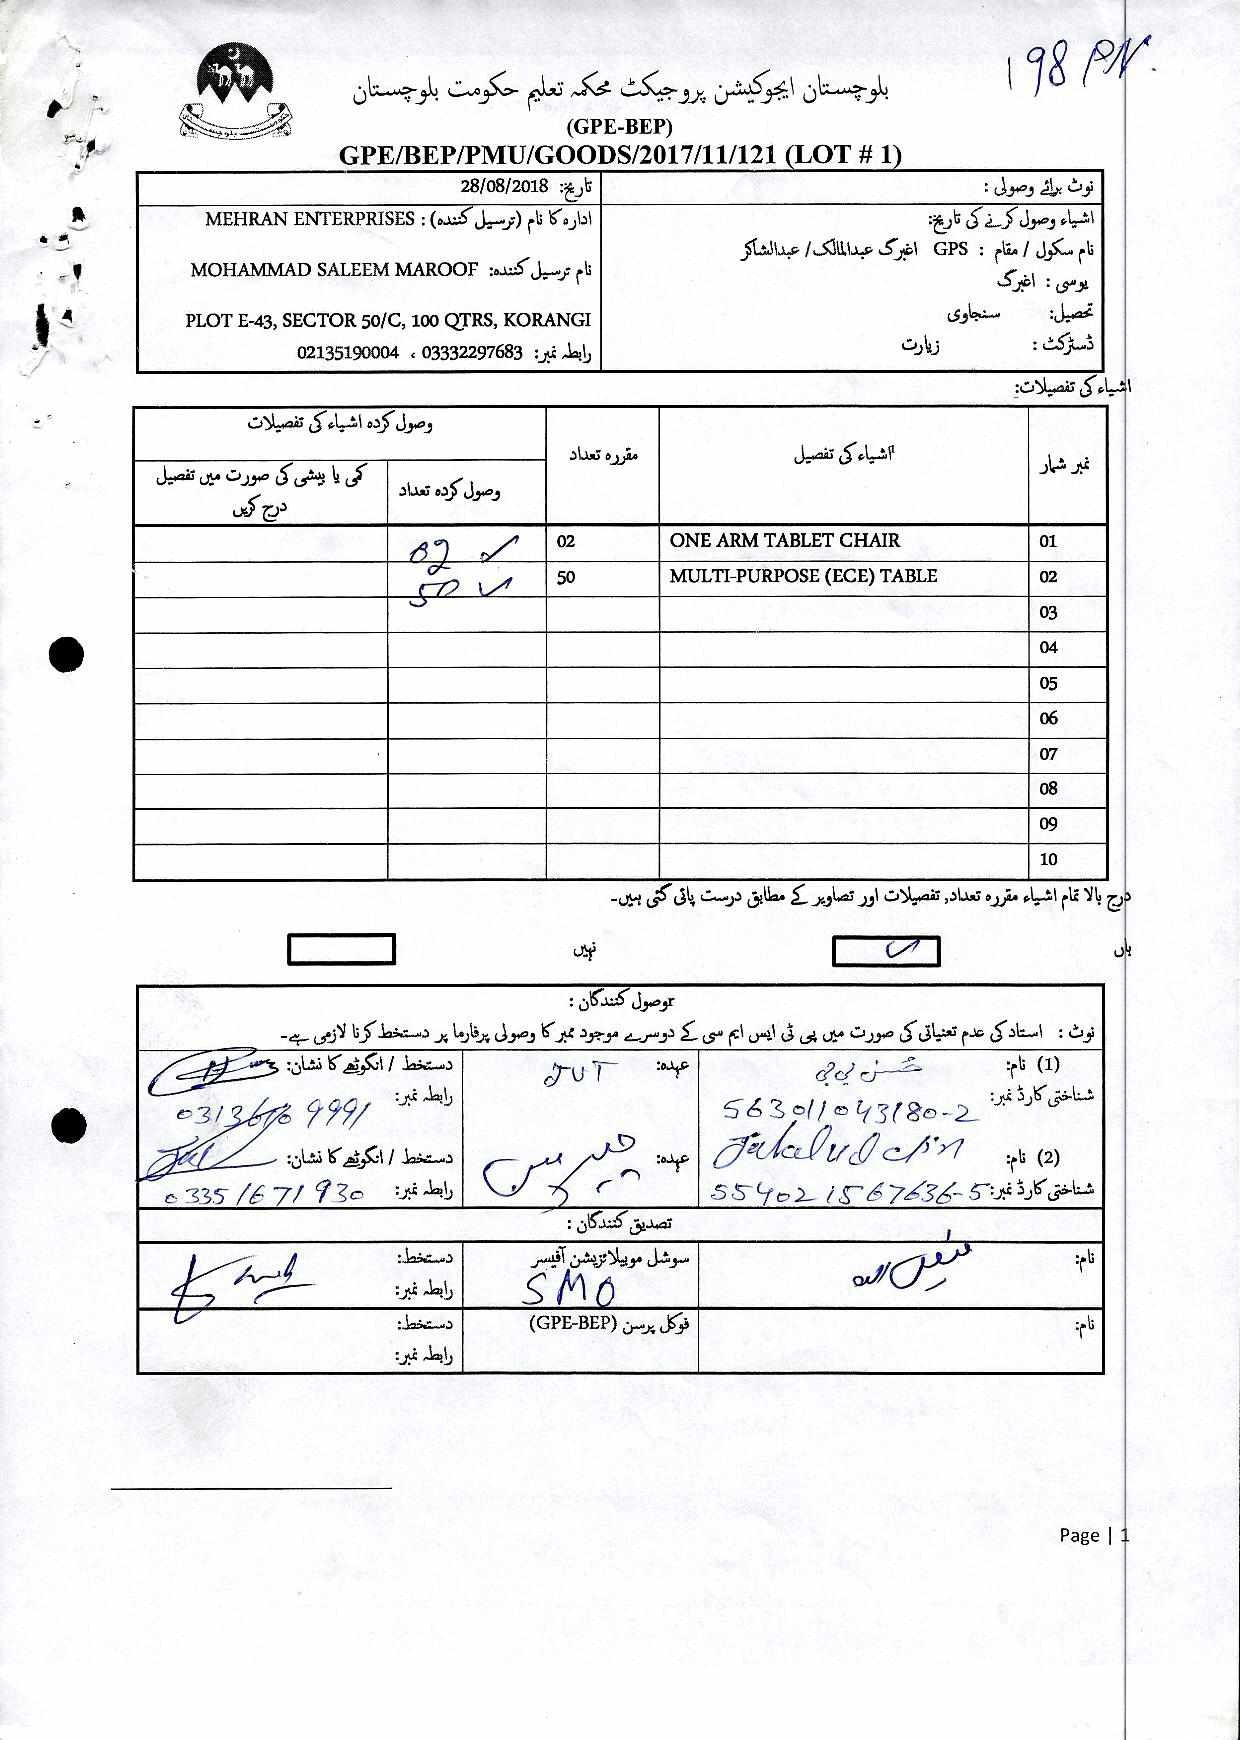 198 PN.
بلوچستان ایجوکیشن پروجیکٹ محکمہ تعلیم حکومت بلوچستان
(GPE-BEP)
GPE/BEP/PMU/GOODS/2017/11/121 (LOT # 1)
نوٹ برائے وصولی :
تاریخ: 28/08/2018
اشیاء وصول کرنے کی تاریخ:
نام سکول / مقام : GPS اغبرگ عبدالمالک/ عبدالشاکر
یوسی : اغبرگ
تحصیل: سنجاوی
ڈسٹرکٹ : زیارت
ادارہ کا نام (ترسیل کنندہ) : MEHRAN ENTERPRISES
نام ترسیل کنندہ: MOHAMMAD SALEEM MAROOF
PLOT E-43, SECTOR 50/C, 100 QTRS, KORANGI
رابطہ نمبر: 03332297683 ، 02135190004
اشیاء کی تفصیلات:
نمبر شمار اشیاء کی تفصیل مقررہ تعداد وصول کردہ اشیاء کی تفصیلات
وصول کردہ تعداد کمی یا بیشی کی صورت میں تفصیل درج کریں
01 ONE ARM TABLET CHAIR 02 02 ✓
02 MULTI-PURPOSE (ECE) TABLE 50 50 ✓
03
04
05
06
07
08
09
10
درج بالا تمام اشیاء مقررہ تعداد, تفصیلات اور تصاویر کے مطابق درست پائی گئی ہیں۔
ہاں ✓ نہیں
وصول کنندگان :
نوٹ : استاد کی عدم تعیناتی کی صورت میں پی ٹی ایس ایم سی کے دوسرے موجود ممبر کا وصولی پرفارما پر دستخط کرنا لازمی ہے۔
(1) نام: عہدہ: JVT دستخط / انگوٹھے کا نشان:
شناختی کارڈ نمبر: 563011043180-2 رابطہ نمبر:
(2) نام: Jalaludin عہدہ: چیرمین دستخط / انگوٹھے کا نشان:
شناختی کارڈ نمبر: 554021567636-5 رابطہ نمبر: 03351671930
تصدیق کنندگان :
نام: سوشل موبیلائزیشن آفیسر دستخط:
SMO رابطہ نمبر:
نام: فوکل پرسن (GPE-BEP) دستخط:
رابطہ نمبر:
Page | 1